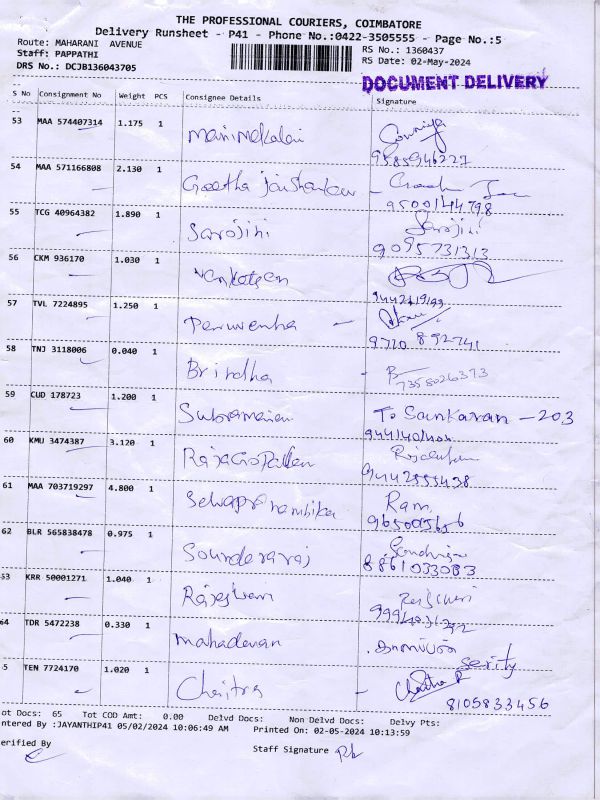 THE PROFESSIONAL COURIERS, COIMBATORE
Delivery Runsheet - P41 - Phone No.:0422-3505555 - Page No.:5
Route: MAHARANI AVENUE RS No.: 1360437
Staff: PAPPATHI RS Date: 02-May-2024
DRS No.: DCJB136043705
DOCUMENT DELIVERY
S No Consignment No Weight PCS Consignee Details Signature
53 MAA 574407314 1.175 1 Manimekalai
9585946227
54 MAA 571166808 2.130 1 Geetha Jaishankar
9500144798
55 TCG 40964382 1.890 1 Sarojini Sarojini
9095731313
56 CKM 936170 1.030 1
57 TVL 7224895 1.250 1
9720 892741
58 TNJ 3118006 0.040 1 Brindha
7358026373
59 CUD 178723 1.200 1 Subramanian To Sankaran - 203
60 KMU 3474387 3.120 1 Rajagopalan
9442555438
61 MAA 703719297 4.800 1 Ram
62 BLR 565838478 0.975 1 Sounderaraj
8861033083
53 KRR 50001271 1.040 1
64 TDR 5472238 0.330 1 Mahadevan
5 TEN 7724170 1.020 1 Chaitra Chaitra R
8105833456
ot Docs: 65 Tot COD Amt: 0.00 Delvd Docs: Non Delvd Docs: Delvy Pts:
ntered By :JAYANTHIP41 05/02/2024 10:06:49 AM Printed On: 02-05-2024 10:13:59
erified By Staff Signature